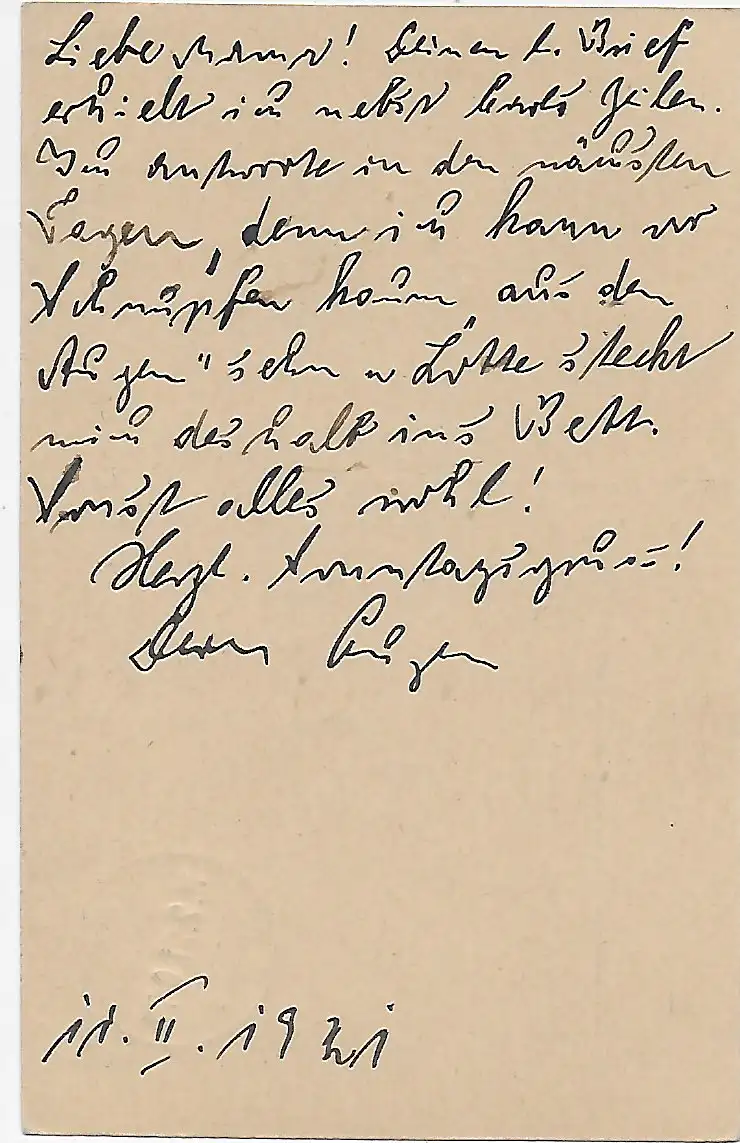 Liebe Mama! Deinen l. Brief
erhielt ich nebst Zeilen.
Ich antworte in den nächsten
Tagen, denn ich kann vor
Schnupfen kaum „aus den
Augen" sehn u Lotte steckt
mich deshalb ins Bett.
Sonst alles wohl!
Herzl. Sonntagsgruss!
Dein Eugen
11. II. 1921